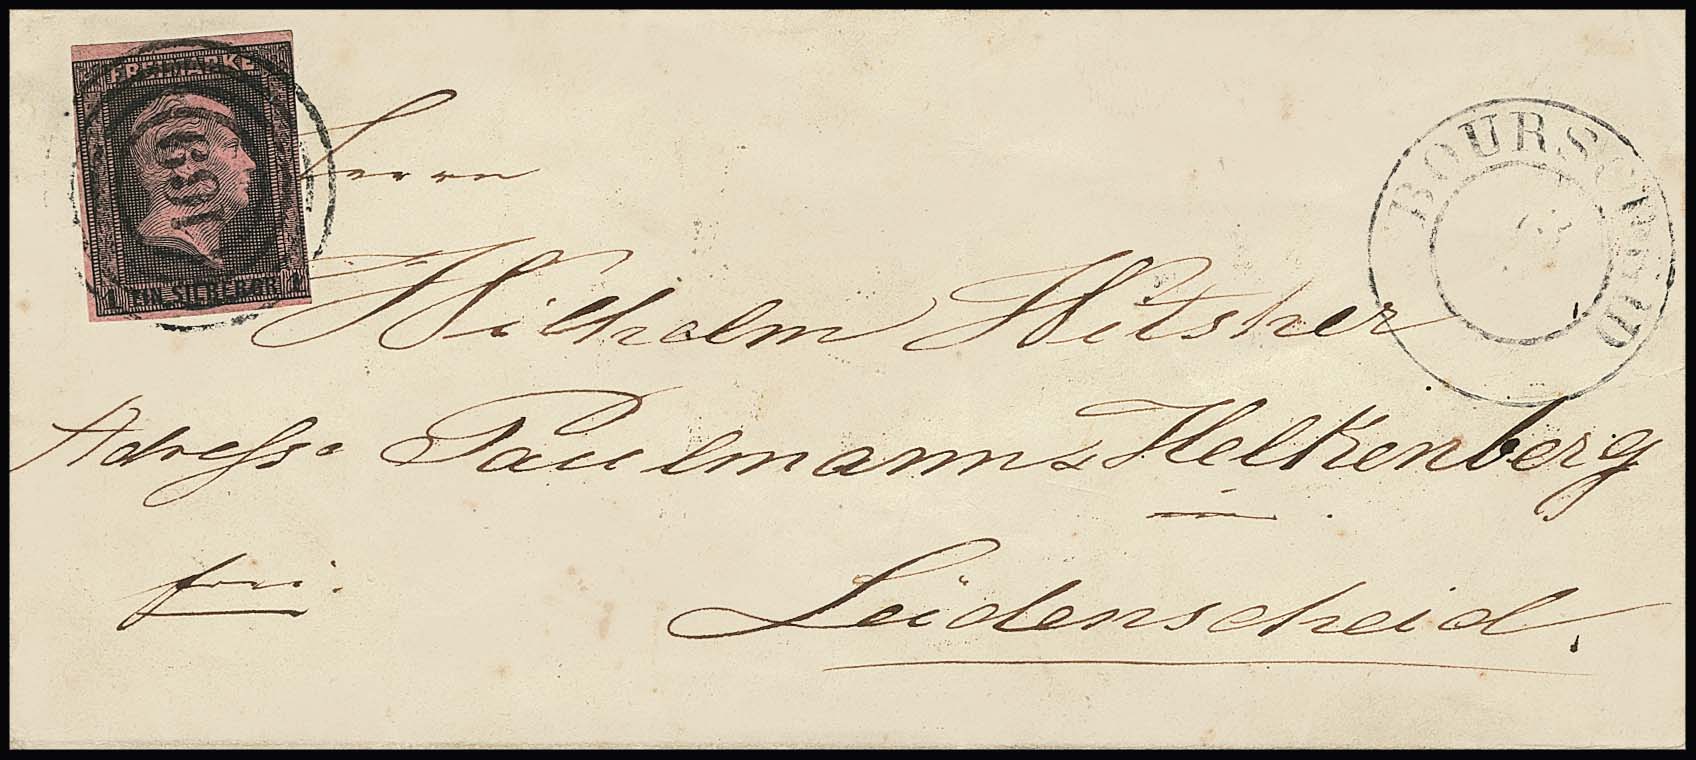 FREIMARKE
1691
1 EIN SILBERGR. 1
BOURSCHEID
Herrn
Wilhelm Hitsker
Adresse Paulmann & Helkenberg
in
frei.
Lüdenscheid.